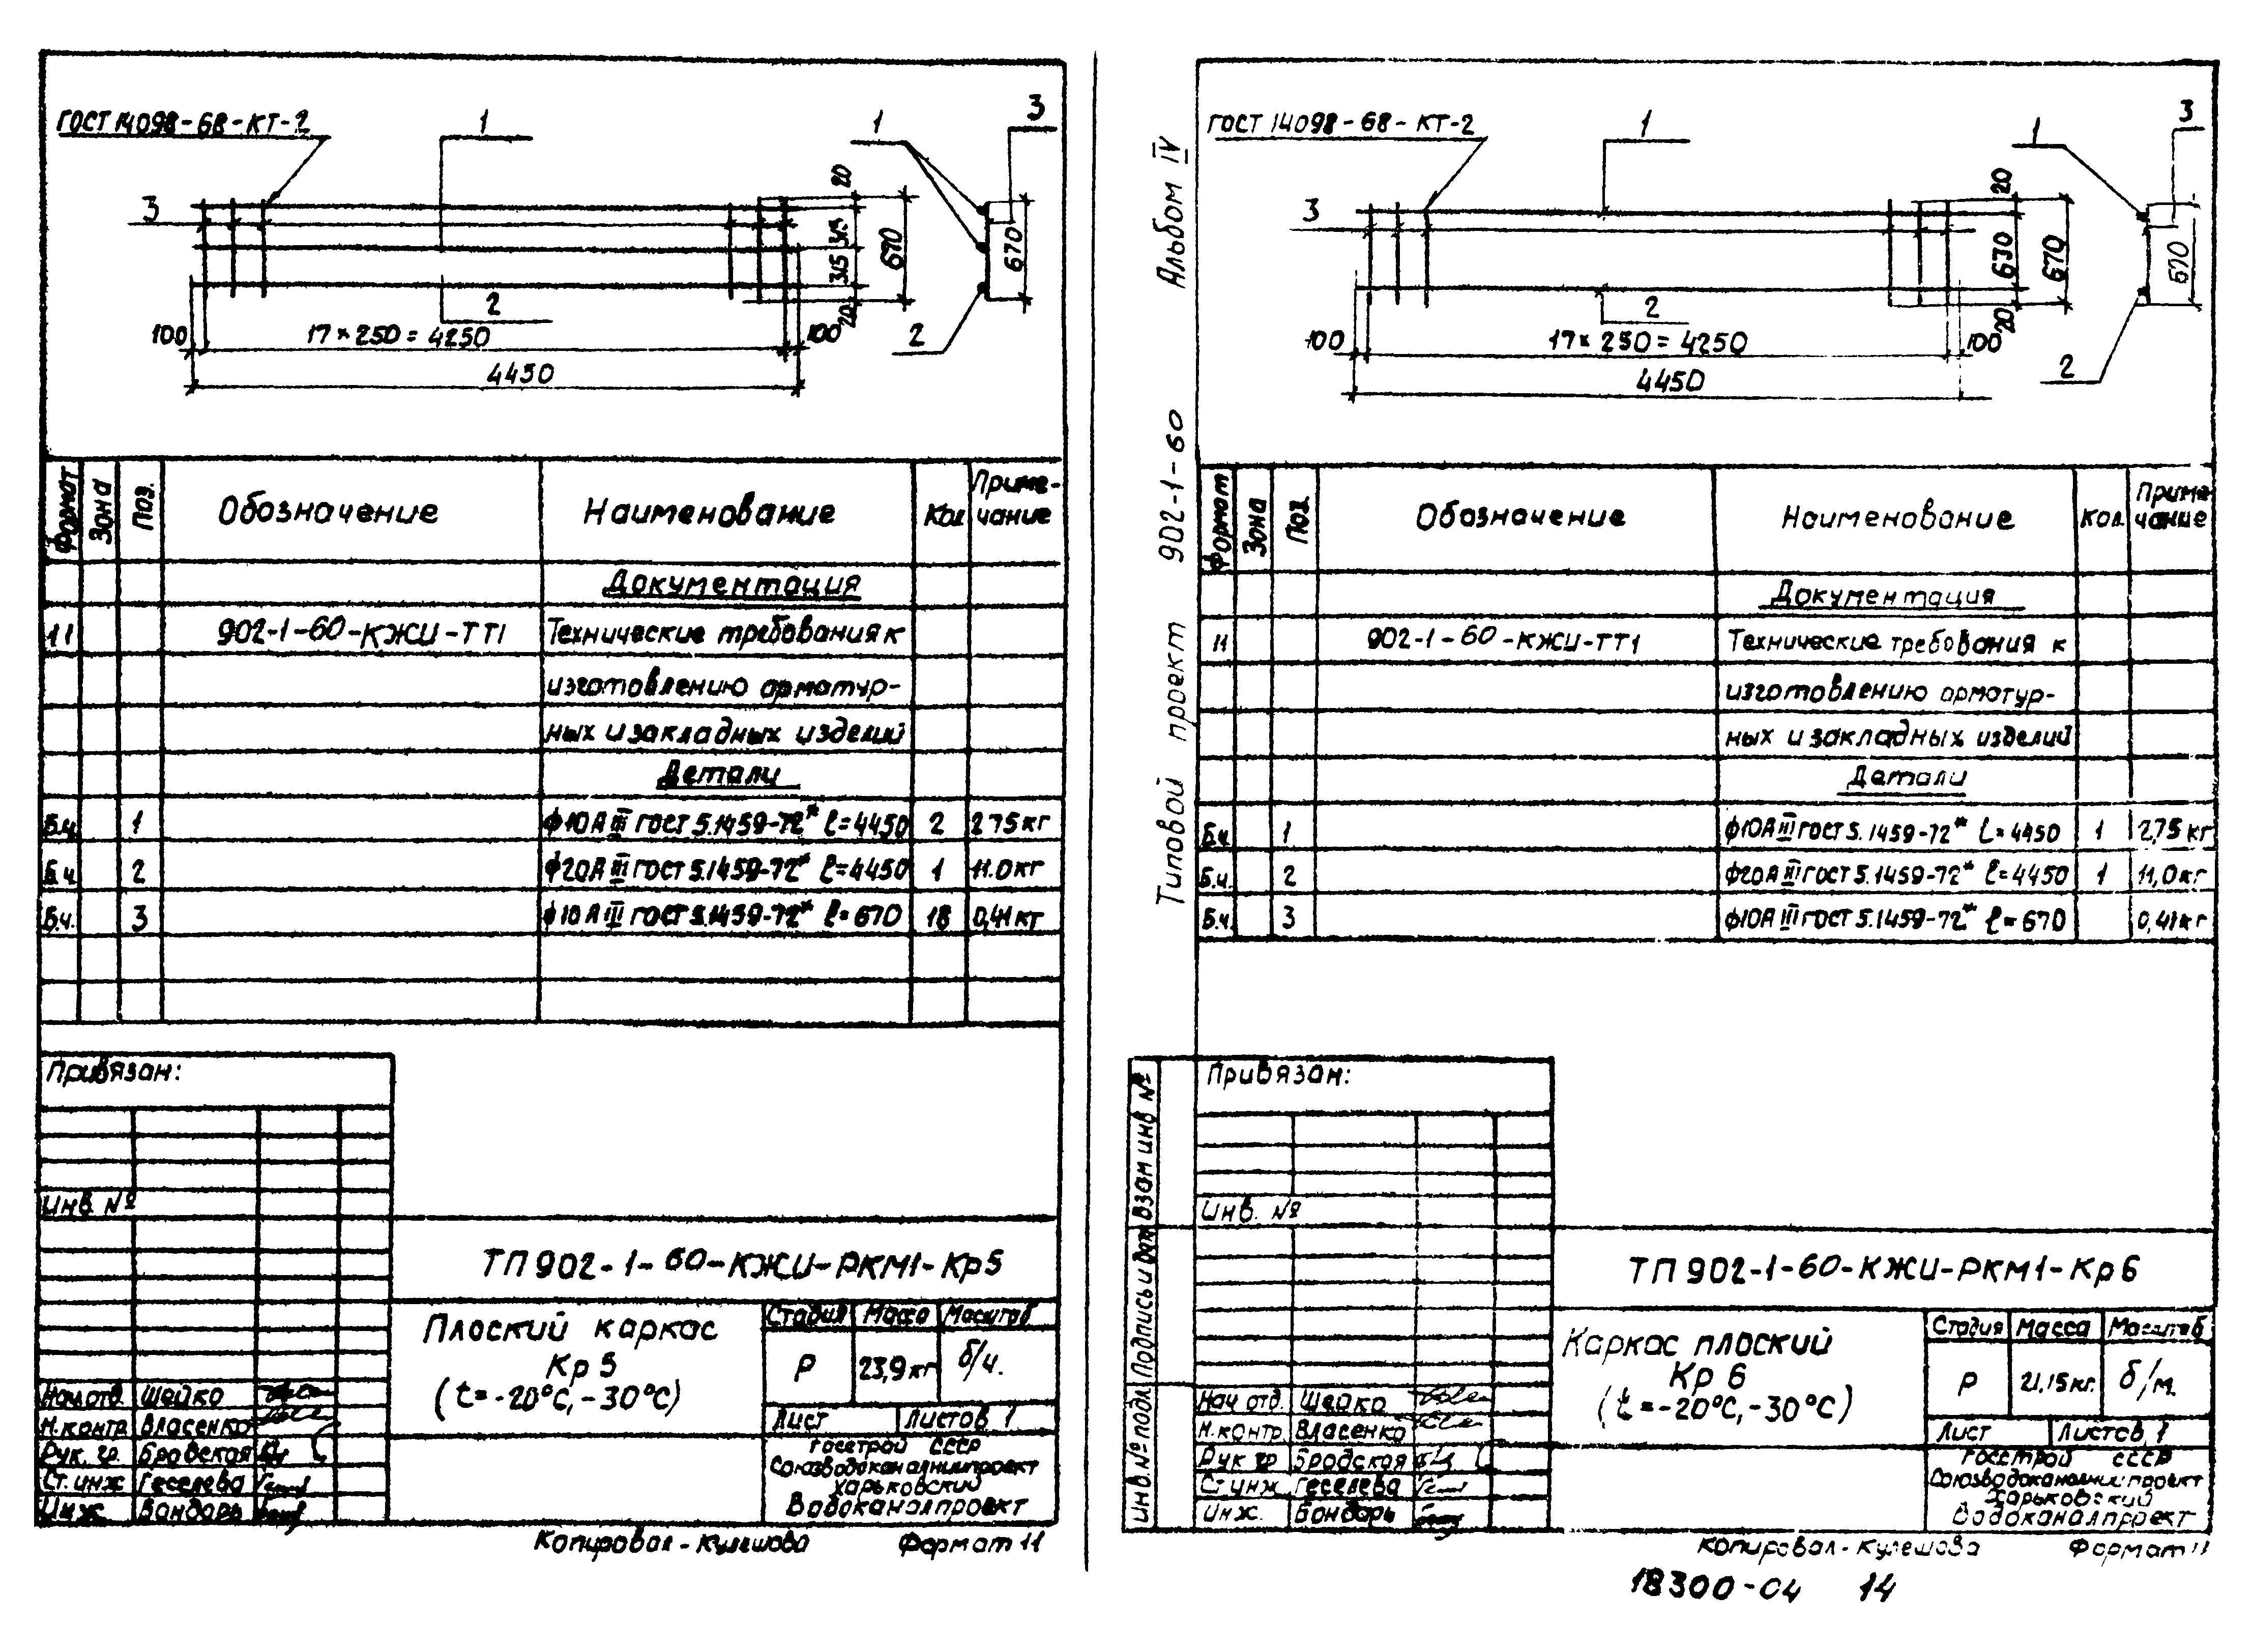 ГОСТ 14098-68-КТ-2
1
1
3
3
20
315
315
20
670
670
2
2
100
17×250=4250
100
4450
Формат
Зона
Поз.
Обозначение
Наименование
Кол
Приме-
чание
Документация
11 902-1-60-КЖИ-ТТ1 Технические требования к
изготовлению арматур-
ных и закладных изделий
Детали
Б.ч. 1 ф10АIII ГОСТ 5.1459-72* ℓ=4450 2 2.75 кг
Б.ч. 2 ф20АIII ГОСТ 5.1459-72* ℓ=4450 1 11.0 кг
Б.ч. 3 ф10АIII ГОСТ 5.1459-72* ℓ=670 18 0,41 кг
Привязан:
Инв №
ТП 902-1-60-КЖИ-РКМ1-Кр5
Плоский каркас
Кр 5
(t=-20°С,-30°С)
Стадия Масса Масштаб
Р 23,9 кг б/ч.
Лист Листов 1
Нач.отд. Шейко
Н.контр. Власенко
Рук. гр. Бродская
Ст.инж Геселева
Инж. Бондарь
Госстрой СССР
Союзводоканалниипроект
Харьковский
Водоканалпроект
Копировал - Кулешова Формат 11
Типовой проект 902-1-60 Альбом IV
ГОСТ 14098-68-КТ-2
1
1
3
3
20
630
20
670
670
2
2
100
17×250=4250
100
4450
Формат
Зона
Поз.
Обозначение
Наименование
Кол.
Приме-
чание
Документация
11 902-1-60-КЖИ-ТТ1 Технические требования к
изготовлению арматур-
ных и закладных изделий
Детали
Б.ч. 1 ф10АIII ГОСТ 5.1459-72* ℓ=4450 1 2,75 кг
Б.ч. 2 ф20АIII ГОСТ 5.1459-72* ℓ=4450 1 11,0 кг
Б.ч. 3 ф10АIII ГОСТ 5.1459-72* ℓ=670 0,41 кг
Инв.№ подл. Подпись и дата Взам инв №
Привязан:
Инв. №
ТП 902-1-60-КЖИ-РКМ1-Кр6
Каркас плоский
Кр 6
(t=-20°С,-30°С)
Стадия Масса Масштаб
Р 21.15 кг. б/м.
Лист Листов 1
Нач отд. Шейко
Н.контр. Власенко
Рук гр Бродская
Ст.инж Геселева
Инж. Бондарь
Госстрой СССР
Союзводоканалниипроект
Харьковский
Водоканалпроект
Копировал - Кулешова Формат 11
18300-04 14